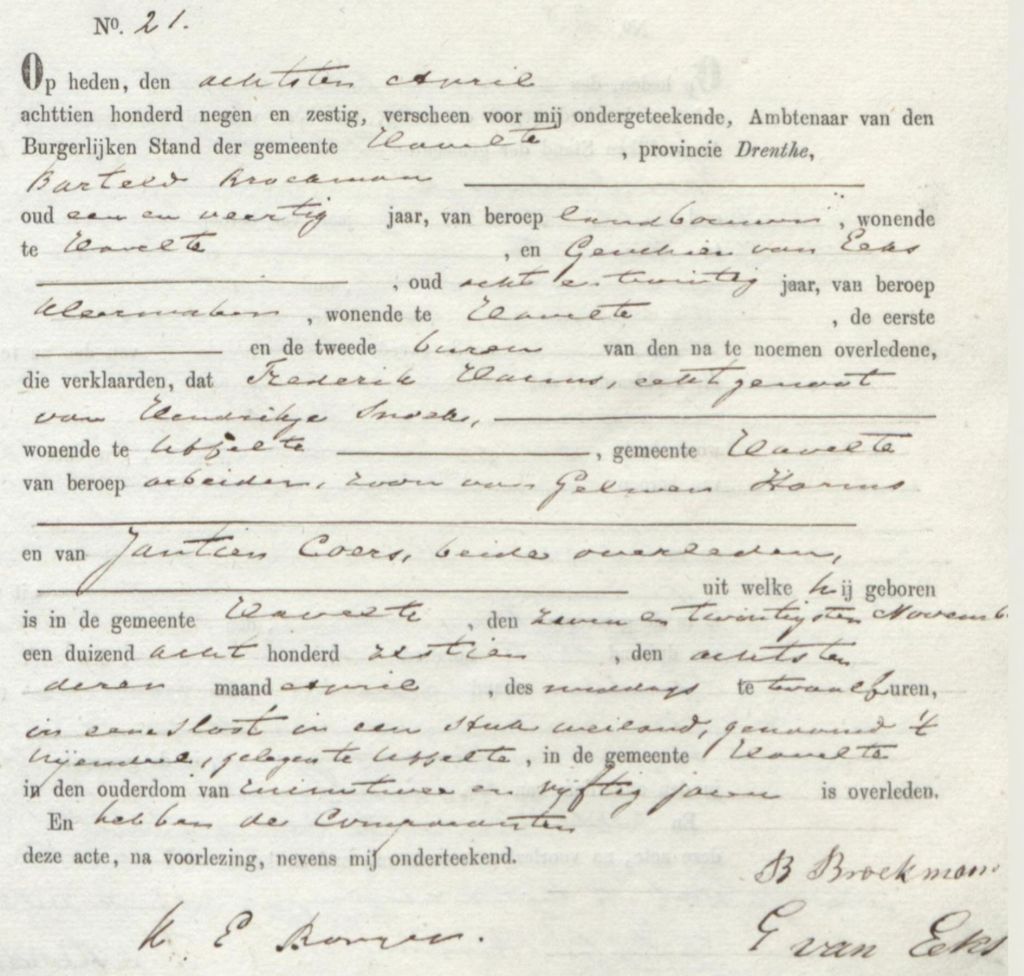 No. 21.
Op heden, den achtsten April
achttien honderd negen en zestig, verscheen voor mij ondergeteekende, Ambtenaar van den
Burgerlijken Stand der gemeente Havelte , provincie Drenthe,
Barteld Broekman
oud een en veertig jaar, van beroep landbouwer , wonende
te Havelte , en Geuchien van Eeks
, oud acht en twintig jaar, van beroep
kleermaker , wonende te Havelte , de eerste
en de tweede buren van den na te noemen overledene,
die verklaarden, dat Frederik Harms, echtgenoot
van Hendrikje Snoek,
wonende te Uffelte , gemeente Havelte
van beroep arbeider, zoon van Harms
en van Jantien Coers, beide overleden,
uit welke hij geboren
is in de gemeente Havelte , den zeven en twintigsten Novemb
een duizend acht honderd zestien , den achtsten
dezer maand April , des middags te twaalf uren,
in eene sloot in een stuk weiland, genaamd 't
gelegen te Uffelte , in de gemeente Havelte
in den ouderdom van ruim twee en vijftig jaren is overleden.
En hebben de Comparanten
deze acte, na voorlezing, nevens mij onderteekend.
B Broekman
G van Eeks